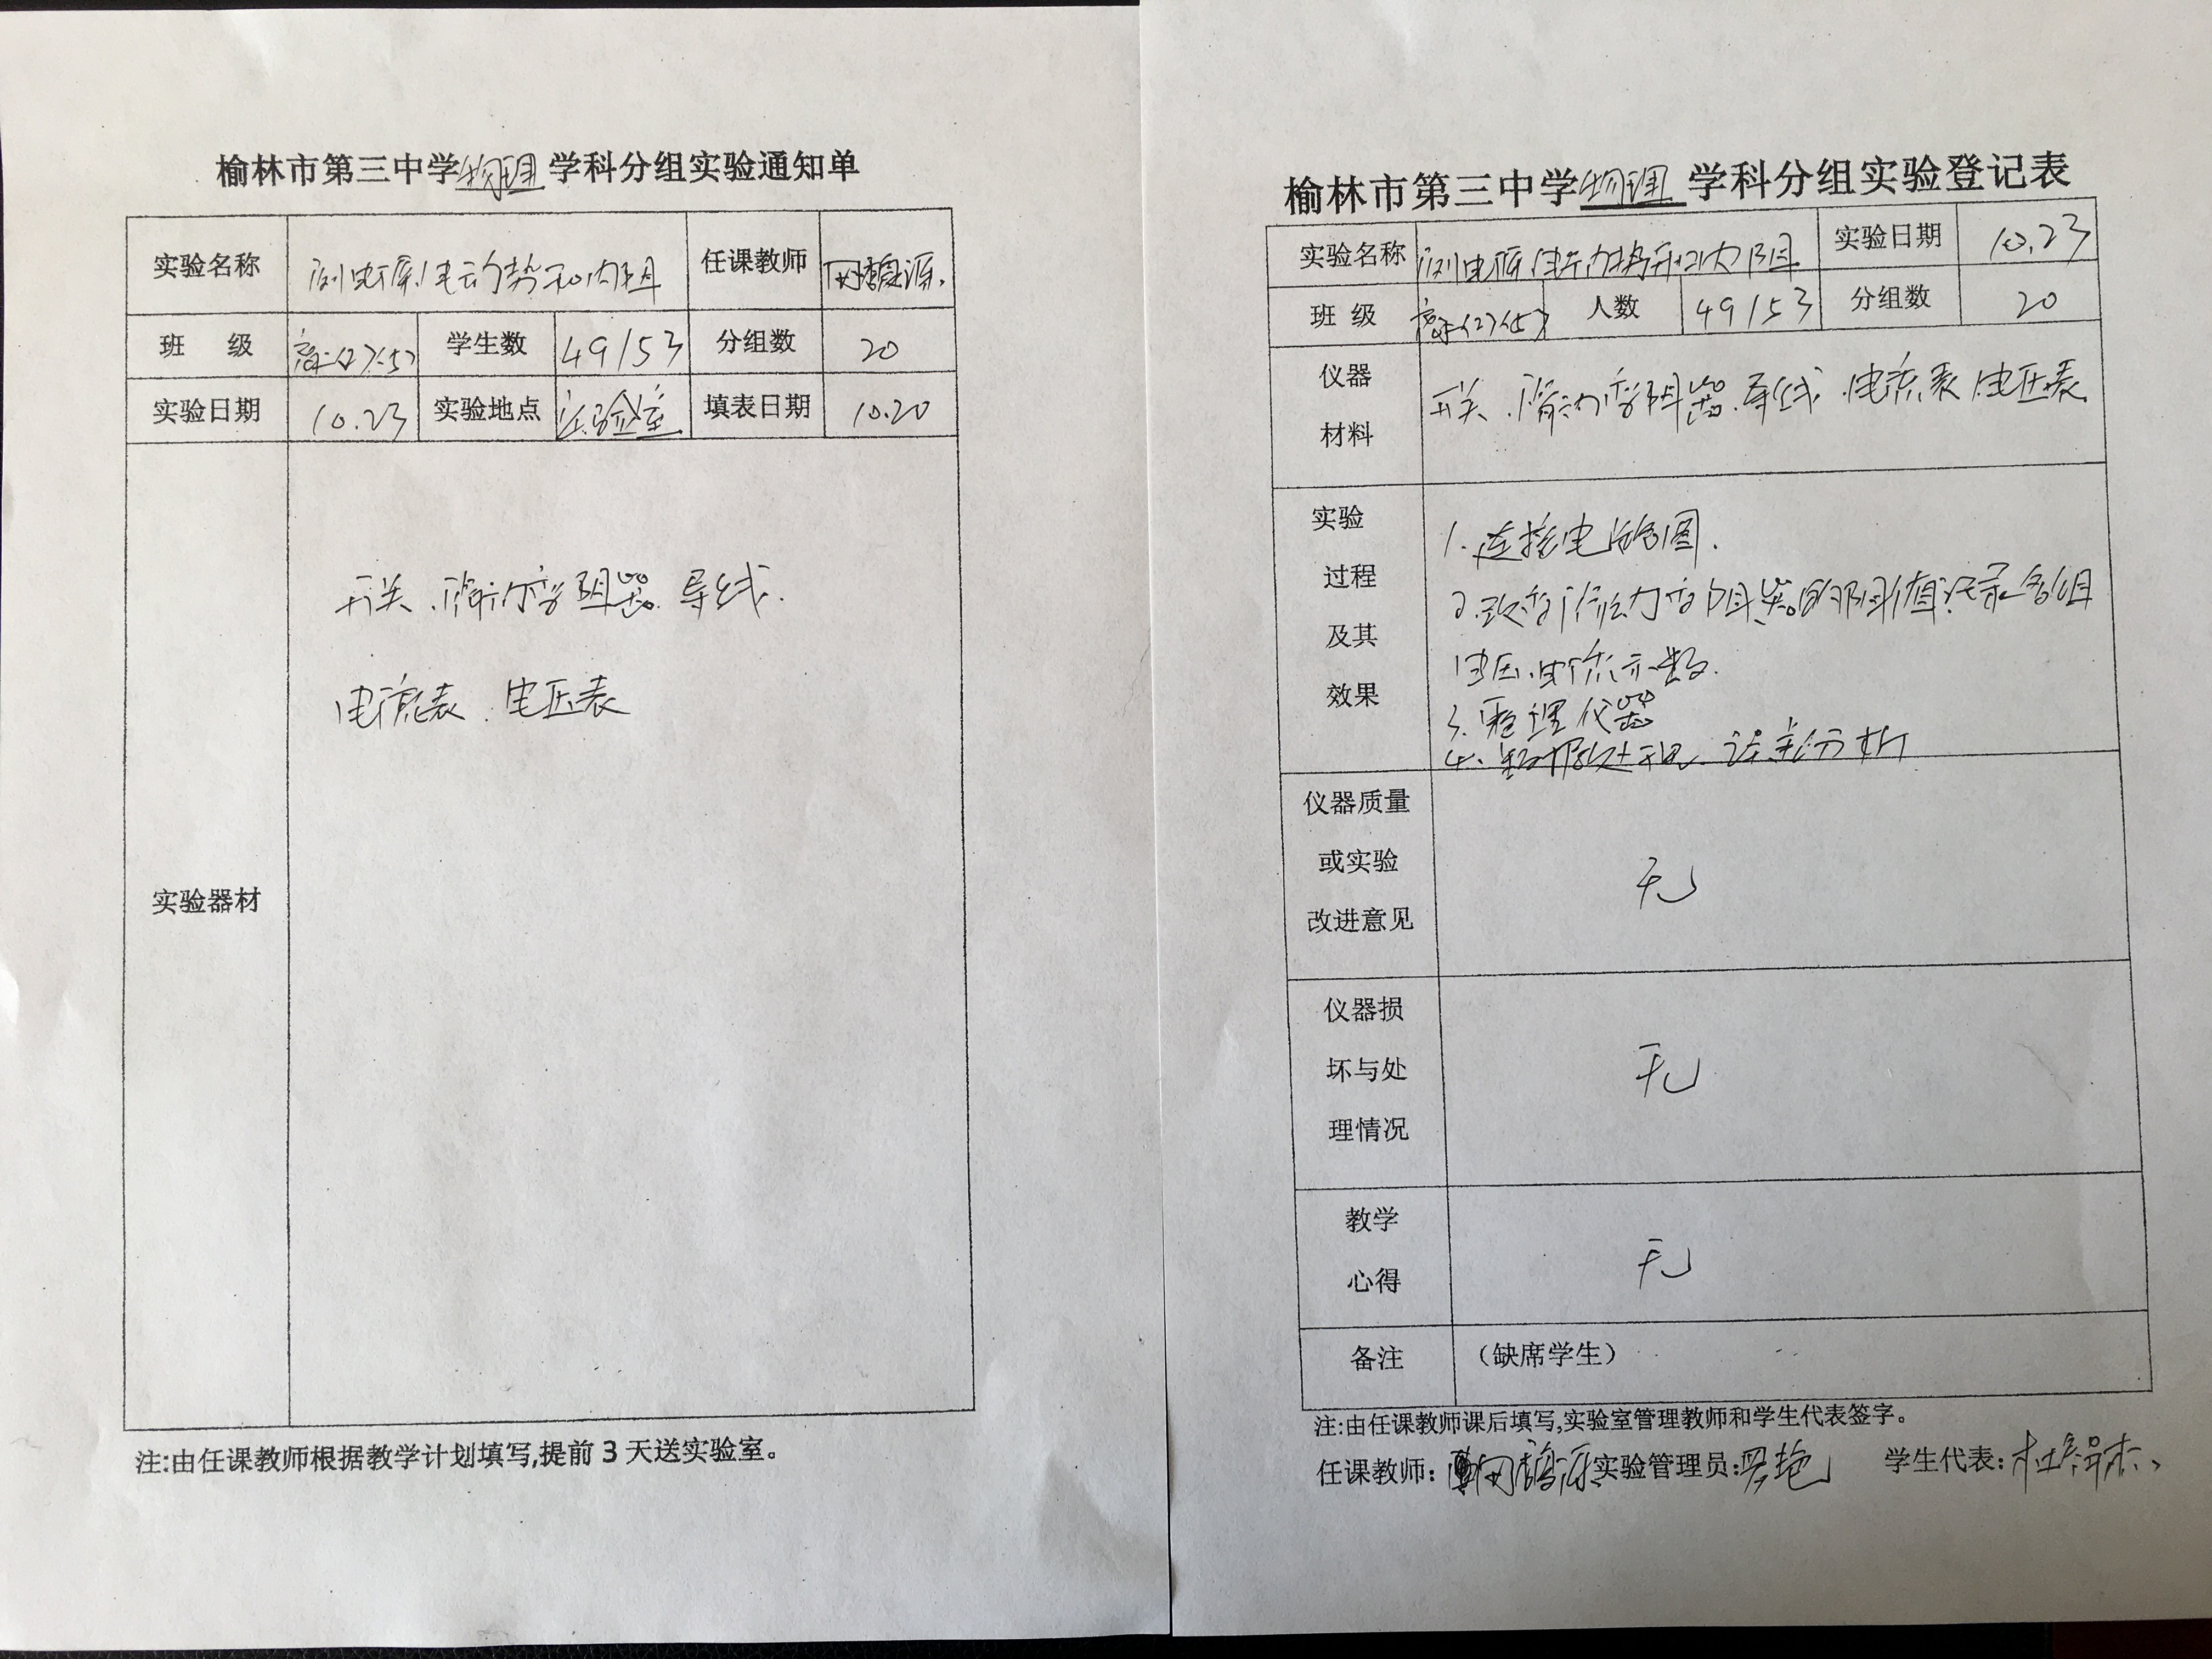 榆林市第三中学物理学科分组实验通知单
实验名称 测电源电动势和内阻 任课教师
班 级 高二(2)(5) 学生数 49/53 分组数 20
实验日期 10.23 实验地点 实验室 填表日期 10.20
实验器材
开关、滑动变阻器、导线.
电流表、电压表
注:由任课教师根据教学计划填写,提前3天送实验室。
榆林市第三中学物理学科分组实验登记表
实验名称 测电源电动势和内阻 实验日期 10.23
班 级 高二(2)(5) 人数 49/53 分组数 20
仪器
材料
开关、滑动变阻器、导线、电流表、电压表
实验
过程
及其
效果
1.连接电路图.
2.改变滑动变阻器的阻值记录各组
电压、电流示数.
3.整理仪器
4.数据处理、误差分析
仪器质量
或实验
改进意见
无
仪器损
坏与处
理情况
无
教学
心得
无
备注 (缺席学生)
注:由任课教师课后填写,实验室管理教师和学生代表签字。
任课教师: 实验管理员: 学生代表: